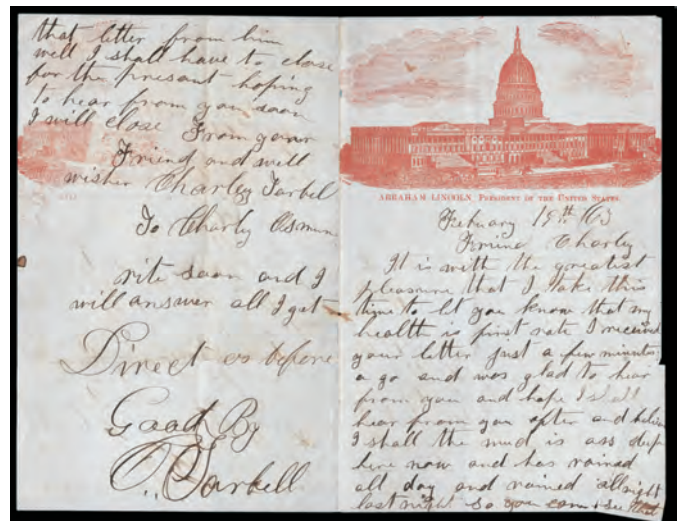 that letter from him
well I shall have to close
for the presant hoping
to hear from you soon
I will close From your
Friend and well
wisher Charley Tarbel
To Charly Osmun
rite soon and I
will answer all I get
Direct as before
Good By
C. Tarbell
ABRAHAM LINCOLN, PRESIDENT OF THE UNITED STATES.
Febuary 19th /63
Friend Charly
It is with the greatest
pleasure that I take this
time to let you know that my
health is first rate I received
your letter just a few minutes
a go and was glad to hear
from you and hope I shall
hear from you ofter and believe
I shall the mud is ass deep
here now and has rained
all day and rained allnight
last night so you can see that